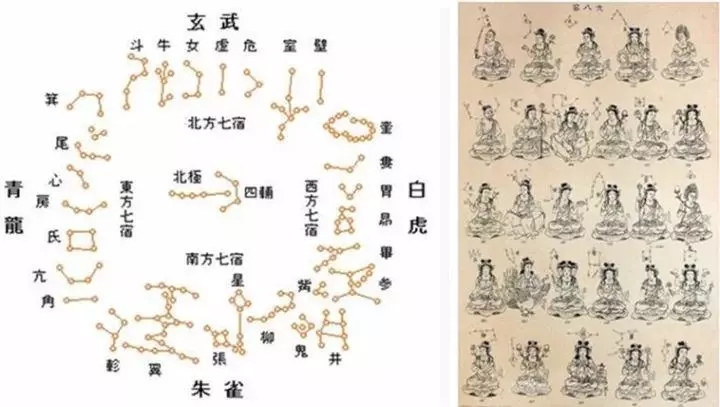 玄武
斗 牛 女 虛 危 室 壁
北方七宿
箕
尾
心
房
氏
亢
角
東方七宿
青龍
北極
四輔
西方七宿
奎
婁
胃
昴
畢
参
觜
白虎
南方七宿
星
軫
翼
張
柳
鬼
井
朱雀